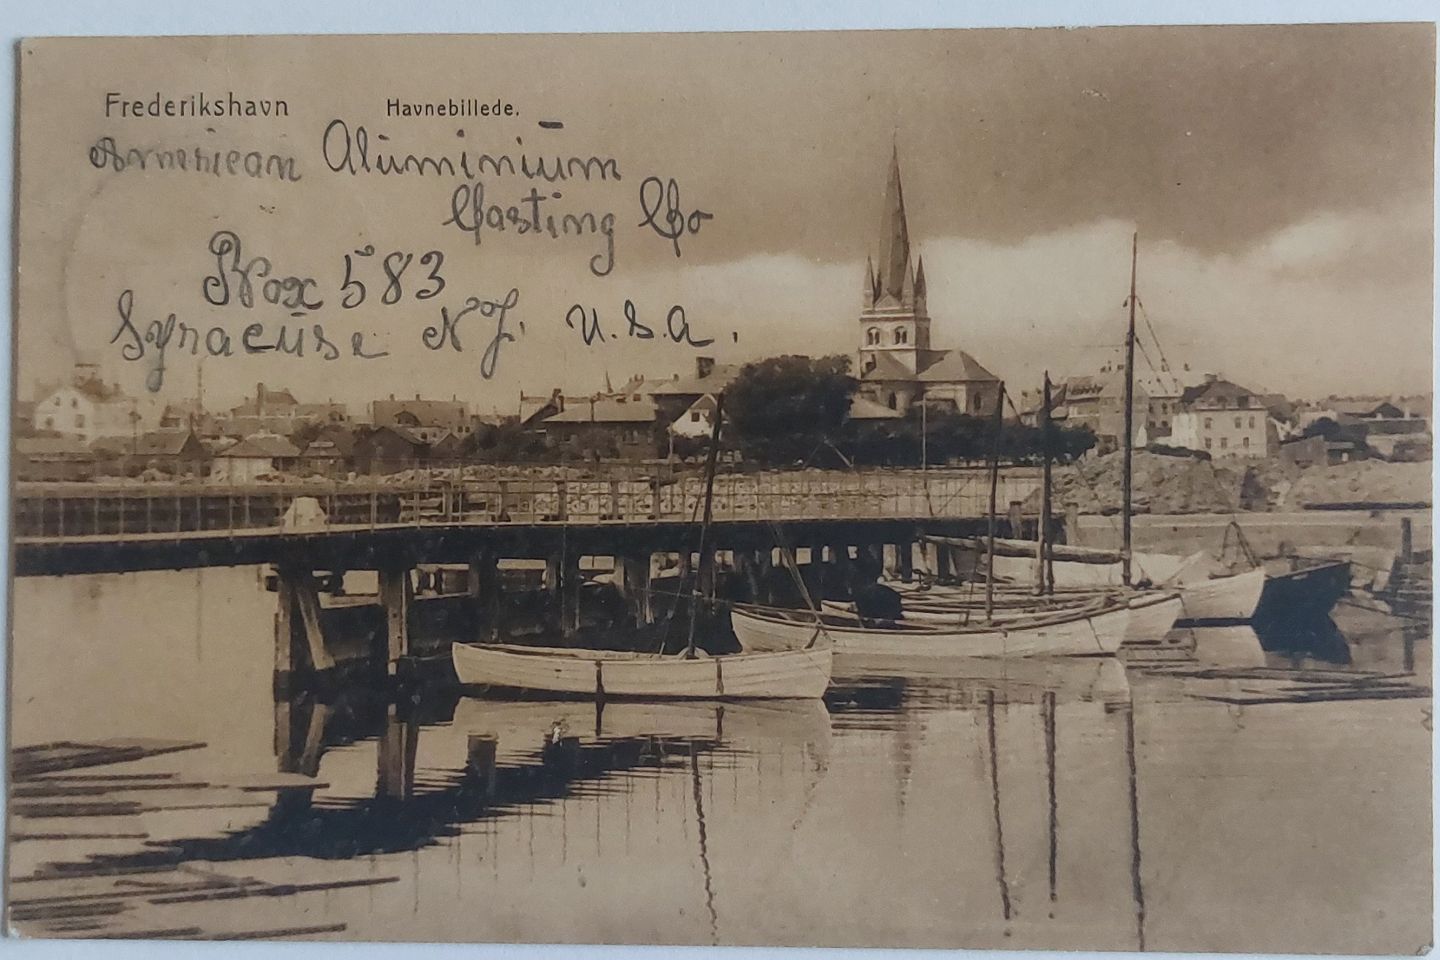 Frederikshavn Havnebillede.
American Aluminium
Casting Co
Box 583
Syracuse N.J. U.S.A.